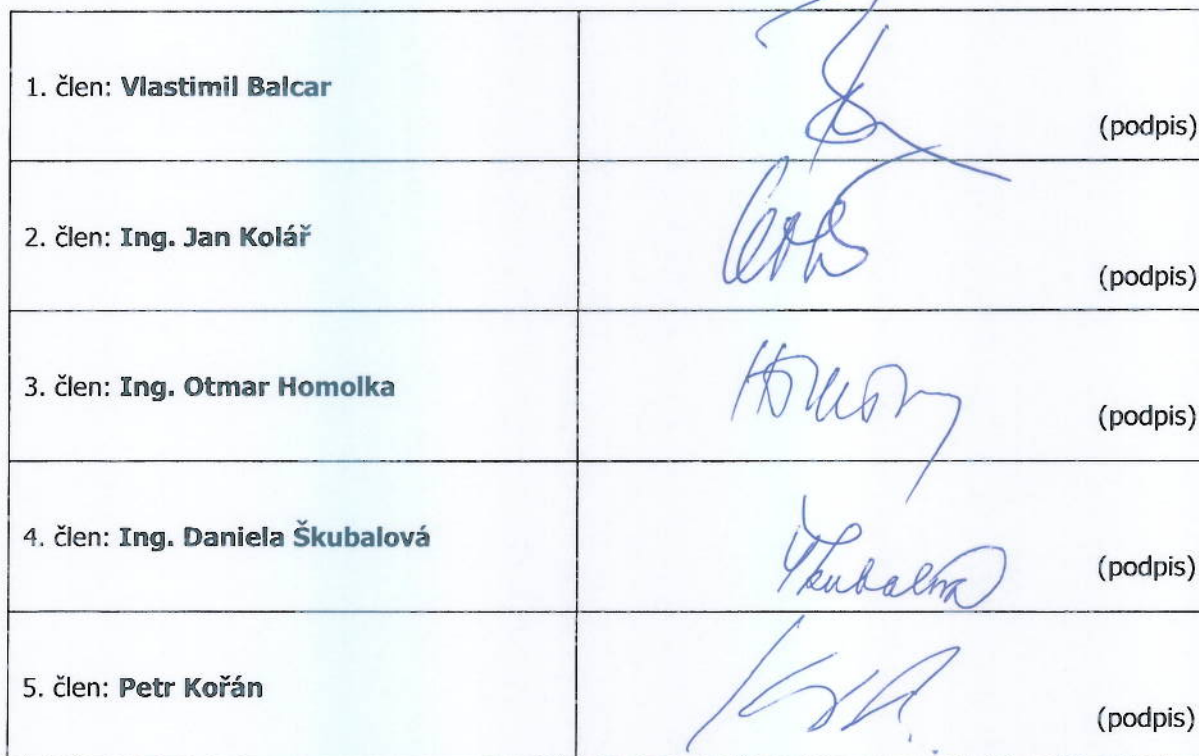 1. člen: Vlastimil Balcar
(podpis)
2. člen: Ing. Jan Kolář
(podpis)
3. člen: Ing. Otmar Homolka
(podpis)
4. člen: Ing. Daniela Škubalová
(podpis)
5. člen: Petr Kořán
(podpis)